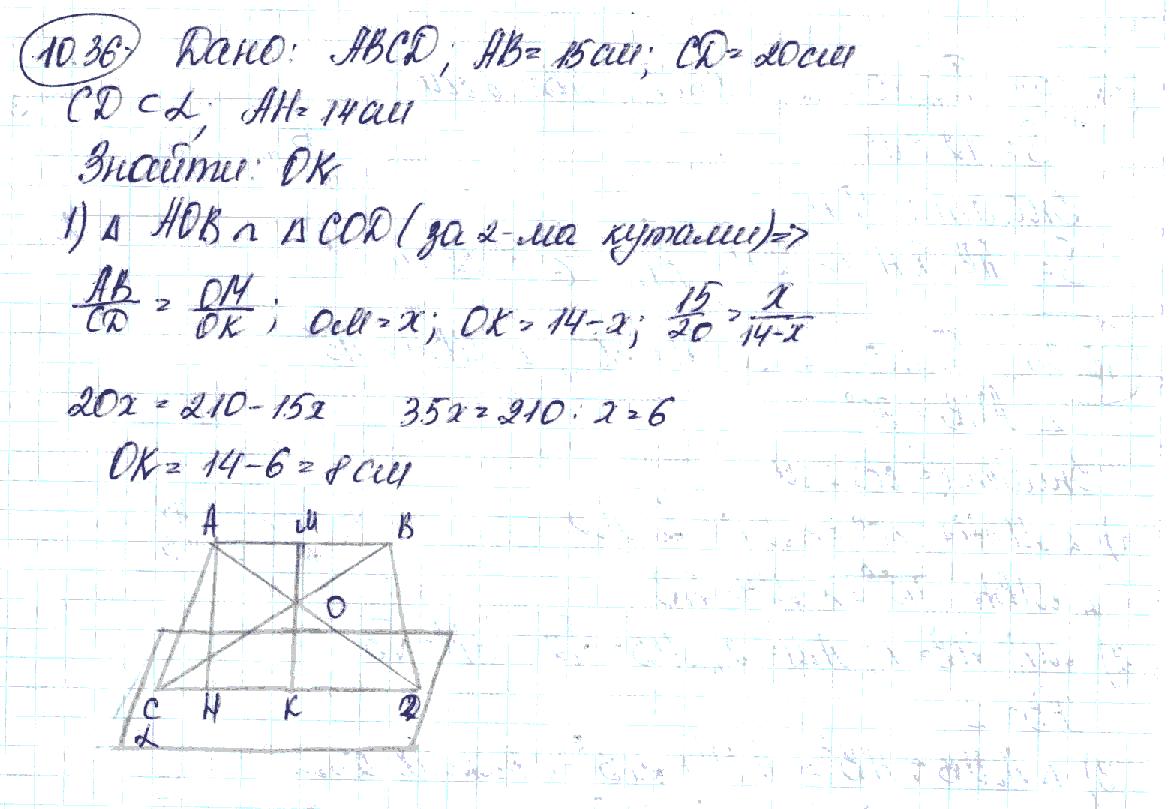 10.36. Дано: ABCD; AB = 15см; CD = 20см
CD ⊂ α; AH = 14см
Знайти: OK
1) Δ AOB ∾ Δ COD (за 2-ма кутами) =>
AB/CD = OM/OK; OM = x; OK = 14-x; 15/20 = x/14-x
20x = 210 - 15x 35x = 210; x = 6
OK = 14 - 6 = 8 см
A M B
O
C H K D
α